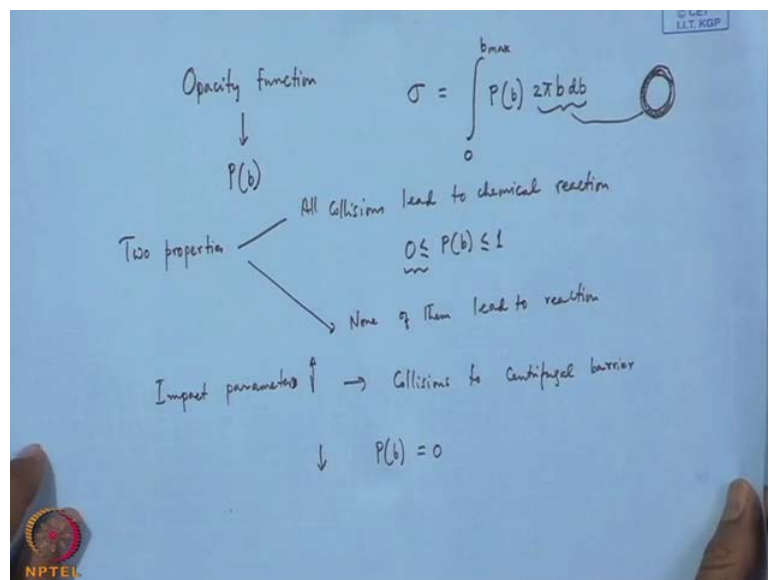 © CET
I.I.T. KGP
Opacity function
↓
P(b)
σ = ∫₀^bmax P(b) 2πb db
All collisions lead to chemical reaction
Two properties
0 ≤ P(b) ≤ 1
None of them lead to reaction
Impact parameters ↑ → Collisions to Centrifugal barrier
↓ P(b) = 0
NPTEL